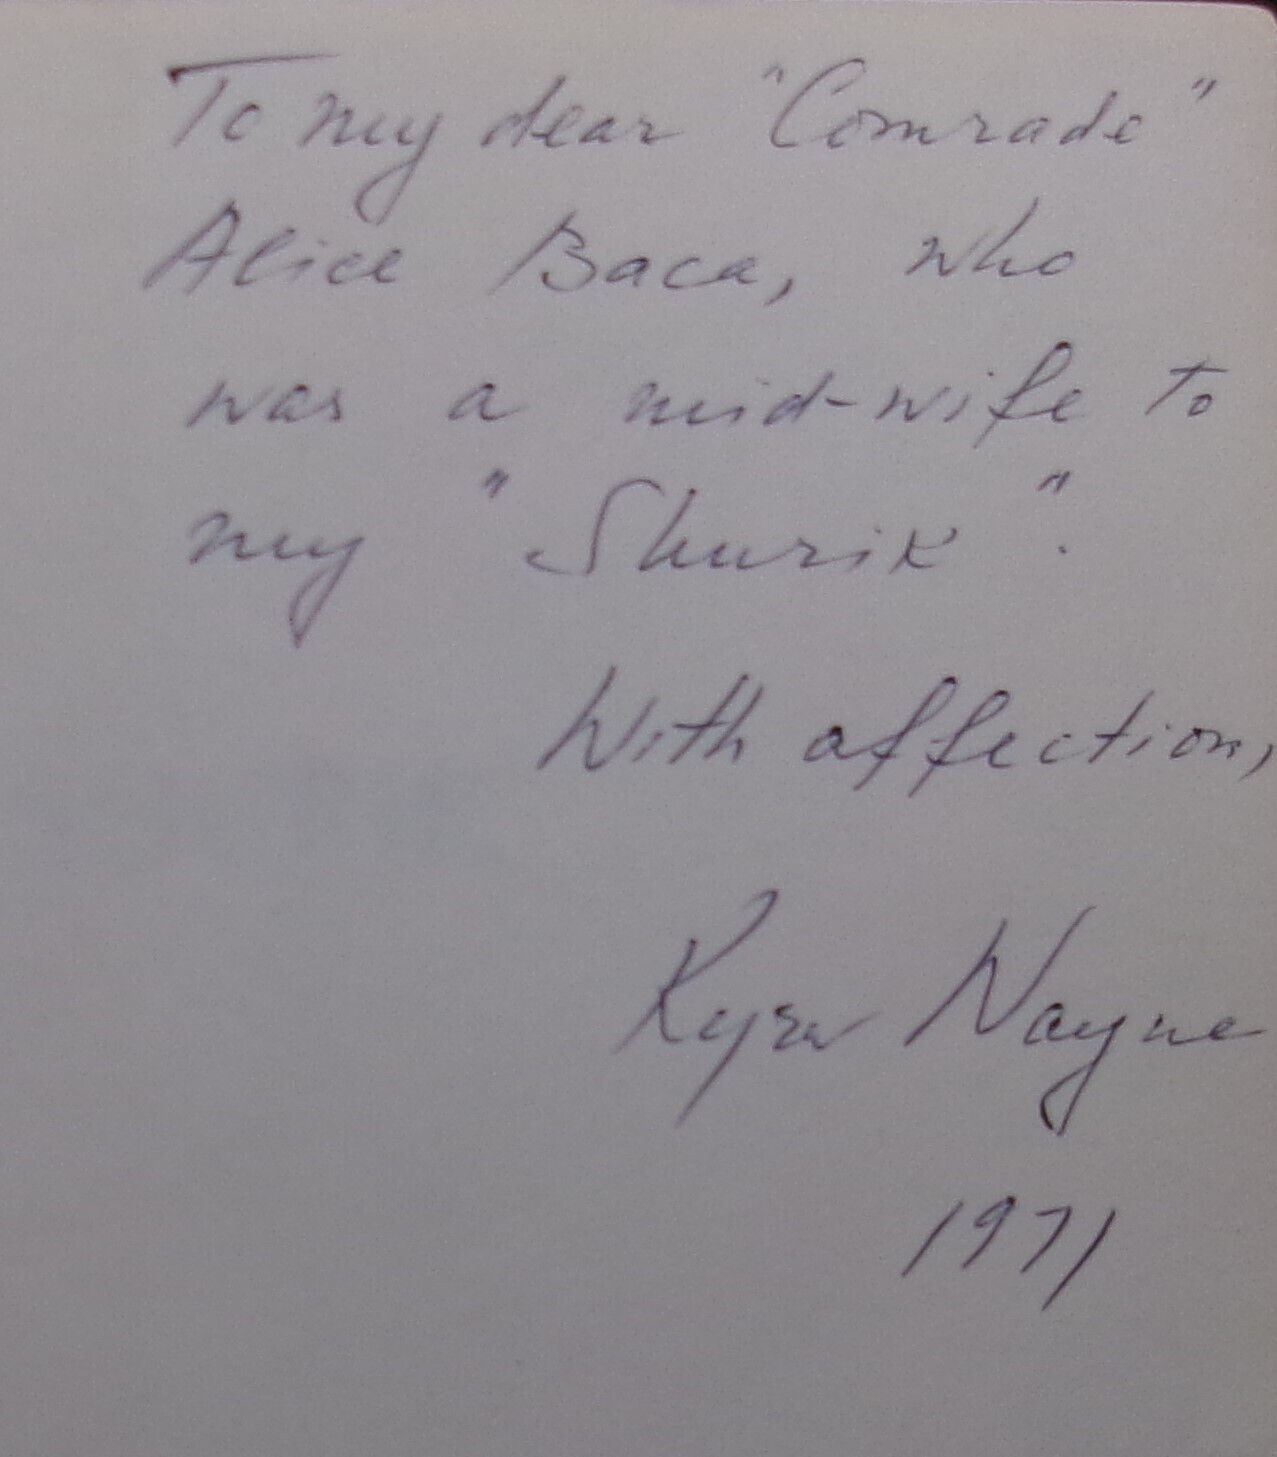 To my dear "Comrade"
Alice Baca, who
was a mid-wife to
my "Shurik".
With affection,
Kyra Wayne
1971